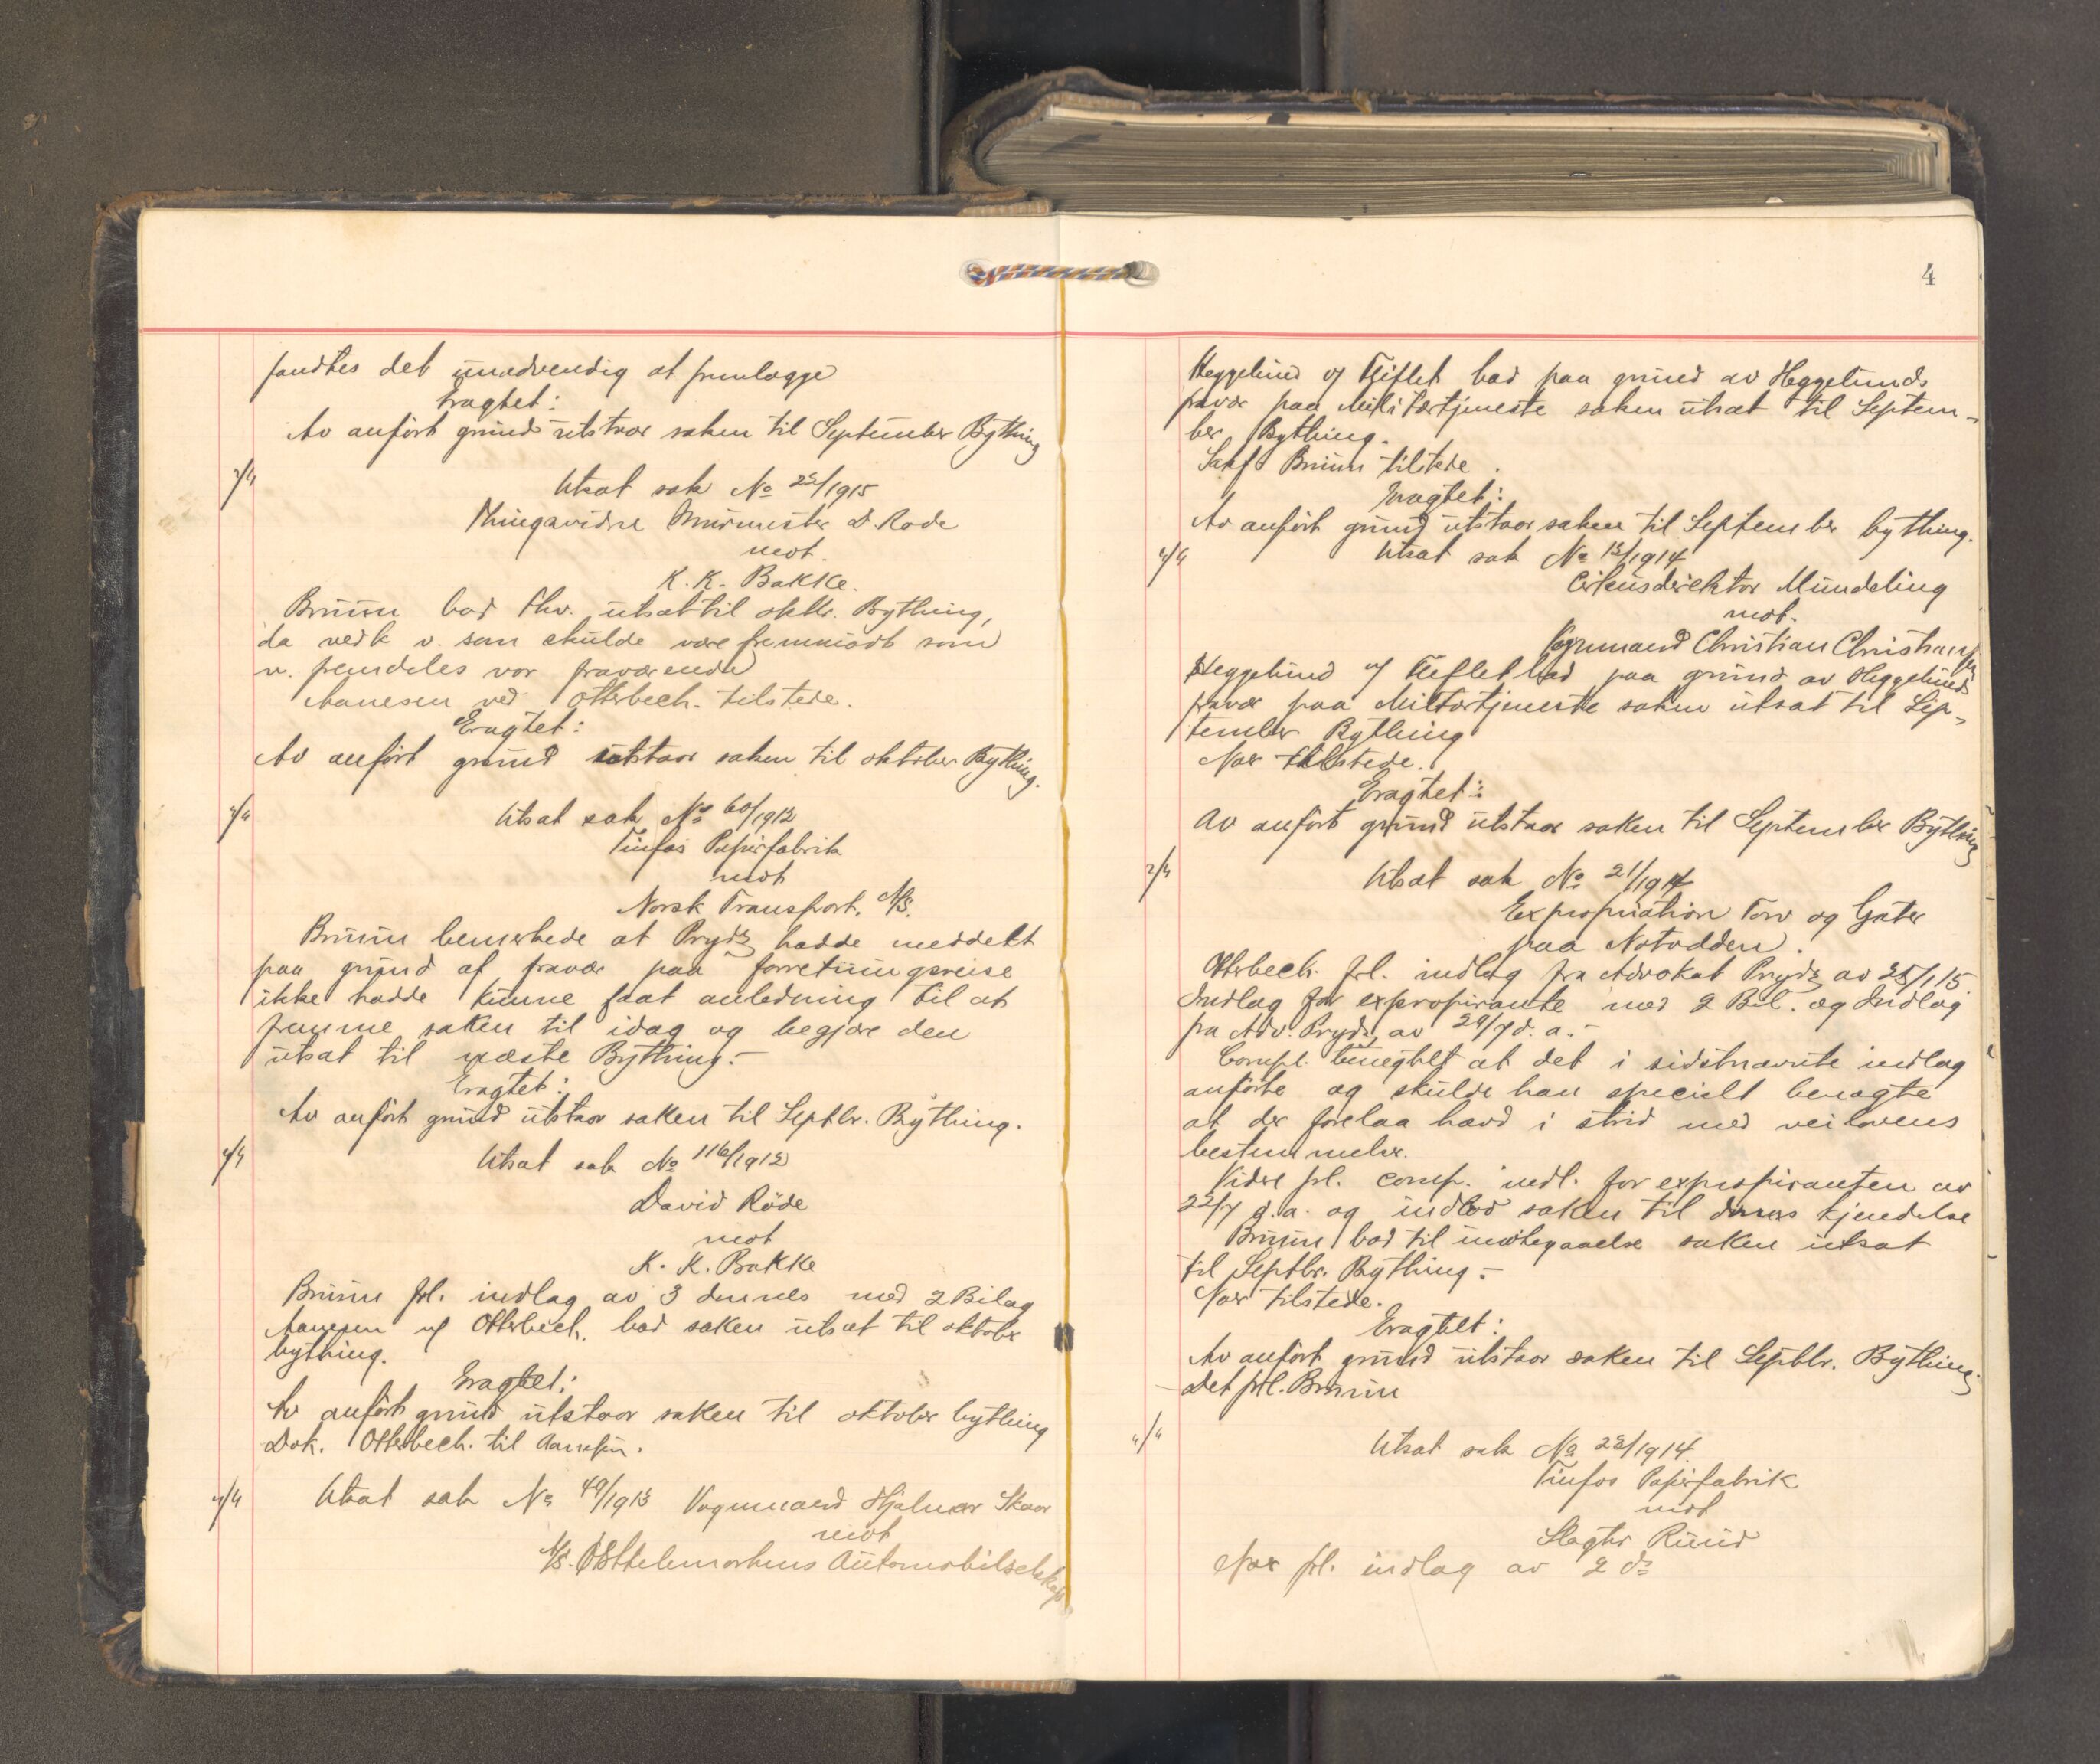 fandtes det unødvendig at fremlægge
Eragtet:
Av anført grund utstaar saken til September Bything
Utsat sak No 25/1915
Thingsvidne Murmester D. Røde
mot.
K. K. Bakke.
Bruun bad thv. utsat til oktbr. Bything,
da vedk v. som skulde være fremmødt som
v. fremdeles var fraværende
Aanesen ved Otterbech. tilstede.
Eragtet:
Av anført grund utstaar saken til oktober Bything.
Utsat sak No 60/1912
Tinfos Papirfabrik
mot
Norsk Transport. A/S.
Bruun bemerkede at Prydz hadde meddelt
paa grund af fravær paa forretningsreise
ikke hadde kunne faat anledning til at
fremme saken til idag og begjære den
utsat til næste Bything.-
Eragtet:
Av anført grund utstaar saken til Septbr. Bything.
Utsat sak No 116/1912
David Røde
mot
K. K. Bakke
Bruun frl. indlag av 3 dennes med 2 Bilag
Aanesen vf Otterbech. bad saken utsat til oktober
bything.
Eragtet:
Av anført grund utstaar saken til oktober bything
Dok. Otterbech. til Aanesen.
Utsat sak No 49/1913 Vognmand Hjalmar Skaar
mot
A/S. Østtelemarkens Automobilselskap
4
Heggelund vf Tieflet bad paa grund av Heggelunds
fravær paa Militærtjeneste saken utsat til Septem-
ber Bything.
Sakf Bruun tilstede.
Eragtet:
Av anført grund utstaar saken til September bything.
Utsat sak No 13/1914
Cirkusdirektør Mundeling
mot.
Vognmand Christian Christiansen
Heggelund vf Tieflet bad paa grund av Heggelunds
fravær paa Militærtjeneste saken utsat til Sep-
tember Bything
Nær tilstede.
Eragtet:
Av anført grund utstaar saken til September Bything
Utsat sak No 21/1914
Expropriation Torv og Gater
paa Notodden.
Otterbech. frl. indlæg fra Advokat Prydz av 25/1 15.
Indlag for expropirante med 2 Bil. og Indlag
fra Adv. Prydz av 29/7 d. a.-
Compl. benegtet at det i sidstnævnte indlag
anførte og skulde han specielt benægte
at der forelaa hævd i strid med veilovens
bestemmelser.
Videre frl. comp. indl. for expropiranten av
22/7 d.a. og indlod saken til dennes kjendelse
Bruun bad til imøtegaaelse saken utsat
til Septbr. Bything.-
Nær tilstede.
Eragtet:
Av anført grund utstaar saken til Septbr. Bything.
Det frl. Bruun
Utsat sak No 23/1914.
Tinfos Papirfabrik
mot
Slagter Ruud
Nær frl. indlag av 2 ds